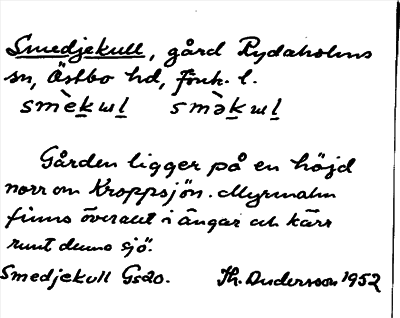 Smedjekull, gård Rydaholms
sn, Östbo hd, Jönk. l.
smèkɯl smə̀kɯl
Gården ligger på en höjd
norr om Kroppsjön. Myrmalm
finns överallt i ängar och kärr
runt denna sjö.
Smedjekull Gs20. Th. Andersson 1952